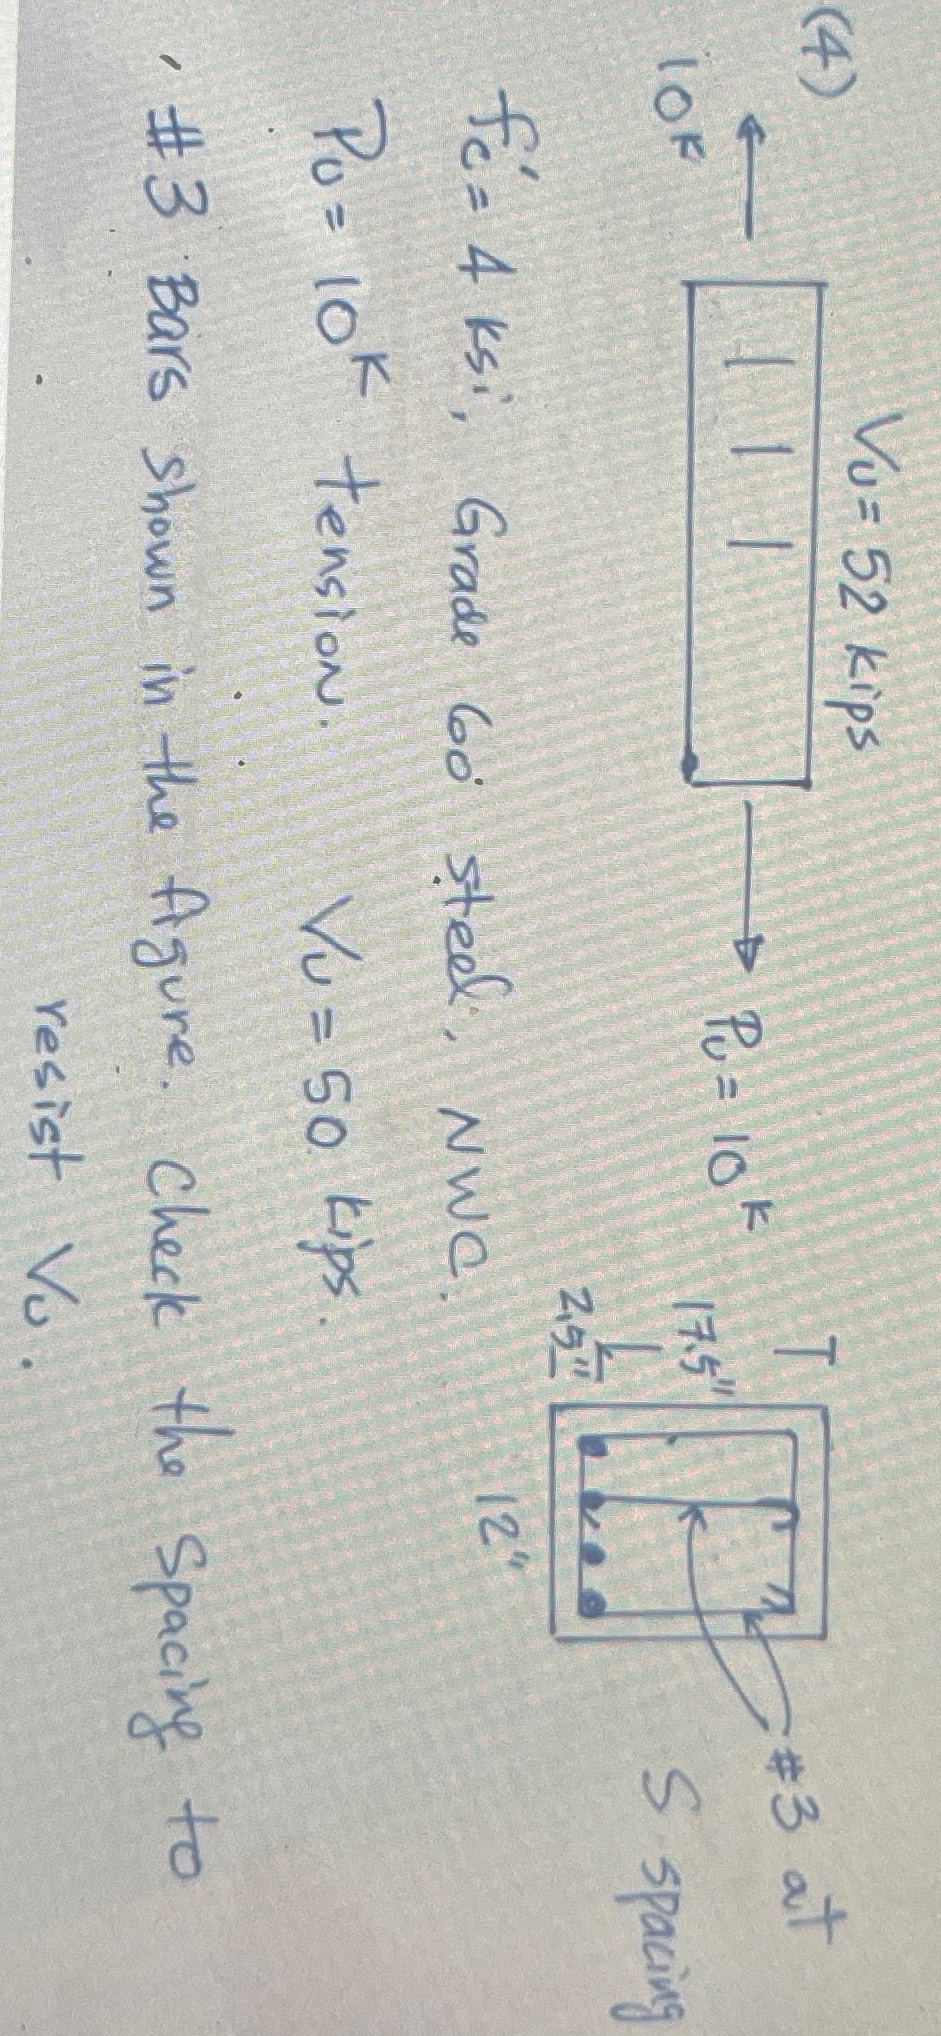 (4)
Vu = 52 kips
10ᴷ
Pu = 10ᴷ
17.5"
2.5"
12"
#3 at
S spacing
fc' = 4 ksi, Grade 60 steel, NWC.
Pu = 10ᴷ tension. Vu = 50 kips.
#3 Bars shown in the figure. Check the spacing to
resist Vu.